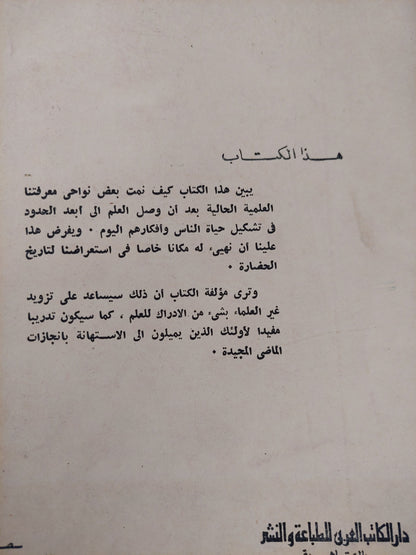 هذا الكتاب
يبين هذا الكتاب كيف نمت بعض نواحى معرفتنا
العلمية الحالية بعد أن وصل العلم الى أبعد الحدود
فى تشكيل حياة الناس وأفكارهم اليوم ٠ ويفرض هذا
علينا أن نهيىء له مكانا خاصا فى استعراضنا لتاريخ
الحضارة ٠
وترى مؤلفة الكتاب أن ذلك سيساعد على تزويد
غير العلماء بشىء من الادراك للعلم ، كما سيكون تدريبا
مفيدا لأولئك الذين يميلون الى الاستهانة بانجازات
الماضى المجيدة ٠
دار الكاتب العربى للطباعة والنشر